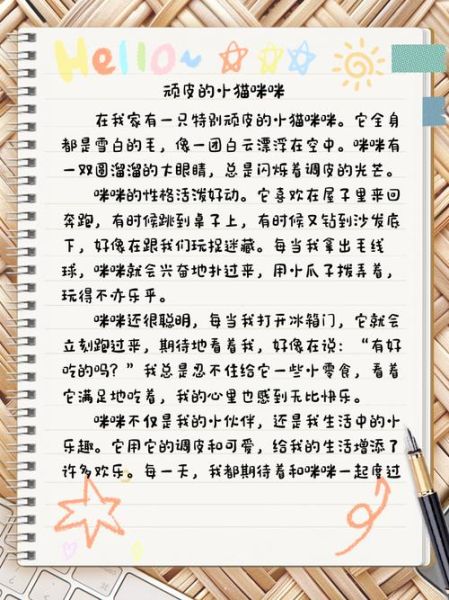 Hello~
顽皮的小猫咪咪
在我家有一只特别顽皮的小猫咪咪。它全身
都是雪白的毛，像一团白云漂浮在空中。咪咪有
一双圆溜溜的大眼睛，总是闪烁着调皮的光芒。
咪咪的性格活泼好动。它喜欢在屋子里来回
奔跑，有时候跳到桌子上，有时候又钻到沙发底
下，好像在跟我们玩捉迷藏。每当我拿出毛线
球，咪咪就会兴奋地扑过来，用小爪子拨弄着，
玩得不亦乐乎。
咪咪还很聪明，每当我打开冰箱门，它就会
立刻跑过来，期待地看着我，好像在说：“有好
吃的吗？”我总是忍不住给它一些小零食，看着
它满足地吃着，我的心里也感到无比快乐。
咪咪不仅是我的小伙伴，还是我生活中的小
乐趣。它用它的调皮和可爱，给我的生活增添了
许多欢乐。每一天，我都期待着和咪咪一起度过